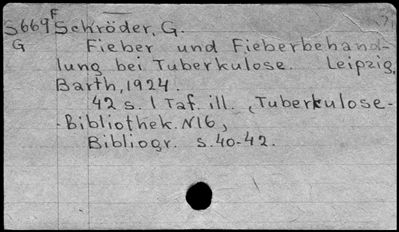 F
S669 Schröder, G.
G Fieber und Fieberbehand-
lung bei Tuberkulose. Leipzig,
Barth, 1924.
42 s. 1 Taf. ill. (Tuberkulose-
-Bibliothek. N16,
Bibliogr. s. 40-42.